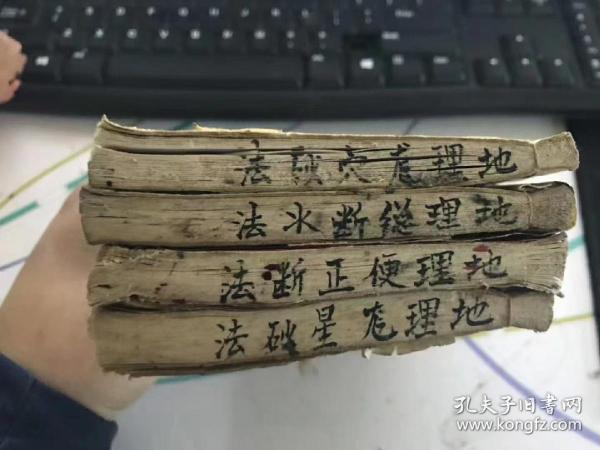 地理穴法
地理総断水法
地理便正断法
地理星法
孔夫子旧书网
www.kongfz.com